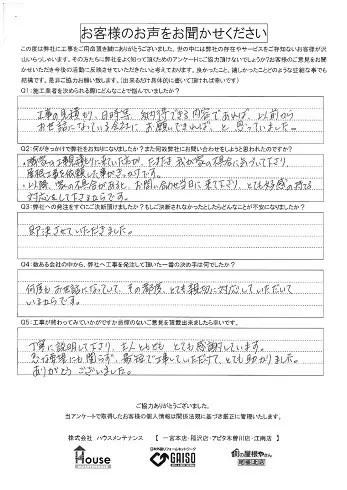 お客様のお声をお聞かせください
この度は弊社に工事をご用命頂き誠にありがとうございました。世の中には弊社の存在やサービスをご存知ないお客様が沢
山いらっしゃいます。その方たちに弊社をよく知って頂くためのアンケートにご協力頂けないでしょうか?お客様のご意見をお聞
かせいただき今後の活動に反映させていただきたいと考えております。良かったこと、嬉しかったことどのような些細な事でも
結構です。是非ご協力お願い致します。(出来るだけ具体的に書いて頂ければ幸いです)
Q1:施工業者を決められる際になにかで悩んでいましたか?
工事の見積り、日時等、納得できる内容であれば、以前から
お世話になっている会社に、お願いできれば、と思っていました。
Q2:何がきっかけで弊社をお知りになりましたか?また何故弊社にお問い合わせをしようと思われたのですか?
屋根工事を依頼した事がきっかけです。
・以降、家の不具合があると、お問い合わせ当日に来て下さり、とても好感の持てる
対応をして下さるからです。
Q3:弊社への発注をすぐにご決断頂けましたか?もしご決断されなかったとしたらどんなことが不安になりましたか?
即決させていただきました。
Q4:数ある会社の中から、弊社へ工事を発注して頂いた一番の決め手は何でしたか?
何度もお世話になっていて、その都度、とても親切に対応していただいて
いるからです。
Q5:工事が終わってみていかがですか忌憚のないご意見を頂戴出来ましたら幸いです。
丁寧に説明して下さり、主人ともども とても感謝しています。
急な修理にも関らず、最短で工事していただけて、とても助かりました。
ありがとうございました。
ご協力ありがとうございました。
当アンケートで取得したお客様の個人情報は関係法規に基づき厳正に管理いたします。
株式会社 ハウスメンテナンス 【 一宮本店・稲沢店・アピタ木曽川店・江南店 】
House
MAINTENANCE
日本外壁リフォームネットワーク
GAISO
街の屋根やさん
尾張北店